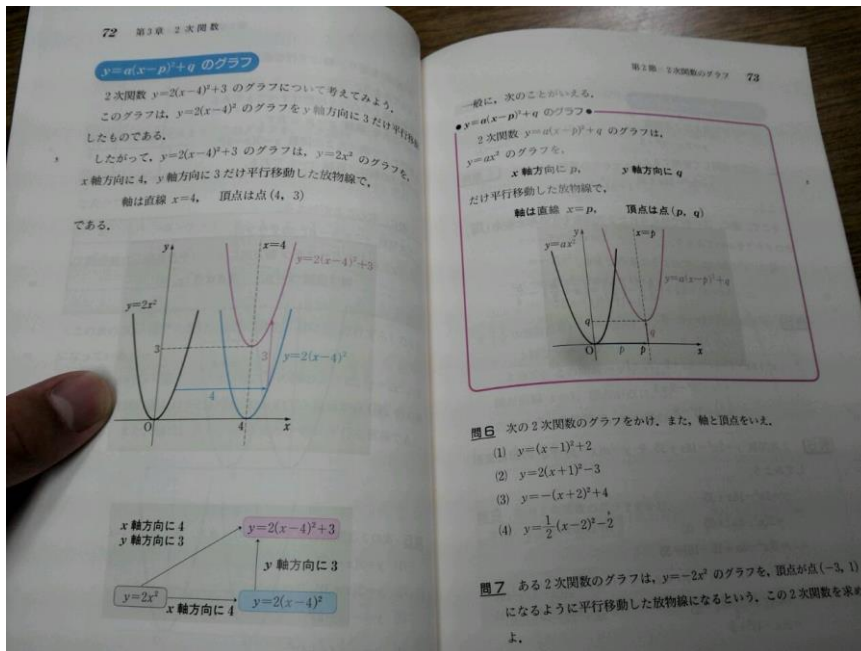 72 第3章 2次関数
y=a(x−p)²+q のグラフ
2次関数 y=2(x−4)²+3 のグラフについて考えてみよう.
このグラフは, y=2(x−4)² のグラフを y 軸方向に 3 だけ平行移動
したものである.
したがって, y=2(x−4)²+3 のグラフは, y=2x² のグラフを,
x 軸方向に 4, y 軸方向に 3 だけ平行移動した放物線で,
軸は直線 x=4, 頂点は点 (4, 3)
である.
y
x=4
y=2(x−4)²+3
y=2x²
3
3
y=2(x−4)²
4
O
4
x
x 軸方向に 4
y 軸方向に 3
y=2(x−4)²+3
y 軸方向に 3
y=2x²
x 軸方向に 4
y=2(x−4)²
第2節 2次関数のグラフ 73
一般に, 次のことがいえる.
●y=a(x−p)²+q のグラフ●
2次関数 y=a(x−p)²+q のグラフは,
y=ax² のグラフを,
x 軸方向に p, y 軸方向に q
だけ平行移動した放物線で,
軸は直線 x=p, 頂点は点 (p, q)
y
x=p
y=ax²
y=a(x−p)²+q
q
q
O
p
p
x
問6 次の2次関数のグラフをかけ. また, 軸と頂点をいえ.
(1) y=(x−1)²+2
(2) y=2(x+1)²−3
(3) y=−(x+2)²+4
(4) y=1/2(x−2)²−2
問7 ある2次関数のグラフは, y=−2x² のグラフを, 頂点が点 (−3, 1)
になるように平行移動した放物線になるという. この2次関数を求め
よ.